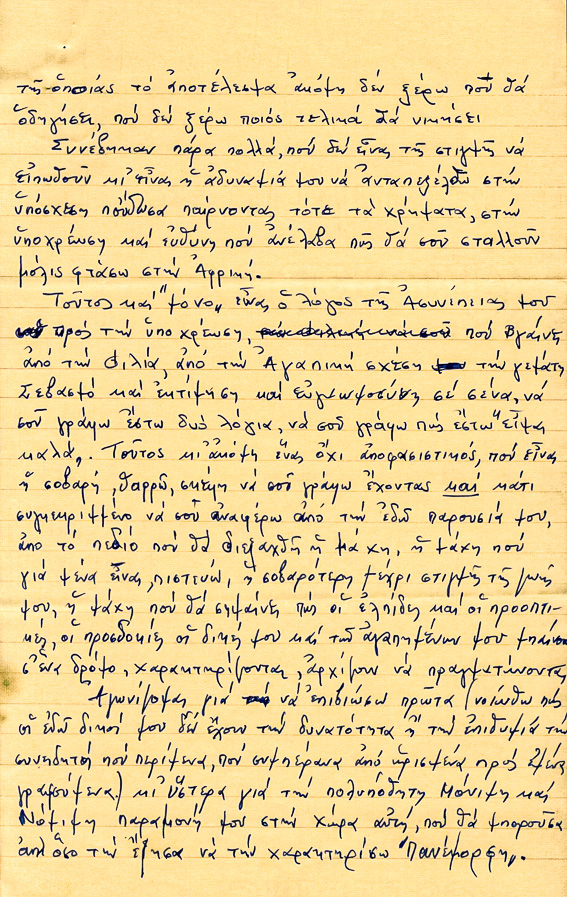 τῆς ὁποίας τό ἀποτέλεσμα ἀκόμη δέν ξέρω ποῦ θά
ὁδηγήσει, πού δέν ξέρω ποιός τελικά θά νικήσει
Συνέβησαν πάρα πολλά, πού δέν εἶναι τῆς στιγμῆς νά
εἰπωθοῦν κι' εἶναι ἡ ἀδυναμία μου νά ἀνταπεξέλθω στήν
ὑπόσχεση πὤδωσα παίρνοντας τότε τά χρήματα, στήν
ὑποχρέωση καί εὐθύνη πού ἀνέλαβα πώς θά σοῦ σταλλοῦν
μόλις φτάσω στήν Ἀφρική.
Τοῦτος καί "μόνο" εἶναι ὁ λόγος τῆς Ἀσυνέπειας μου
πρός τήν ὑποχρέωση, πού βγαίνει
ἀπό τήν φιλία, ἀπό τήν Ἀγαπική σχέση τήν γεμάτη
Σεβασμό καί ἐκτίμηση καί εὐγνωμοσύνη σέ σένα, νά
σοῦ γράψω ἔστω δυό λόγια, νά σοῦ γράψω πώς ἔστω "εἶμαι
καλά". Τοῦτος κι' ἀκόμη ἕνας ὄχι ἀποφασιστικός, πού εἶναι
ἡ σοβαρή, θαρρῶ, σκέψη νά σοῦ γράψω ἔχοντας καί κάτι
συγκεκριμμένο νά σοῦ ἀναφέρω ἀπό τήν ἐδῶ παρουσία μου,
ἀπό τό πεδίο πού θά διεξαχθῆ ἡ μάχη, ἡ μάχη πού
γιά μένα εἶναι, πιστεύω, ἡ σοβαρότερη μέχρι στιγμῆς τῆς ζωῆς
μου, ἡ μάχη πού θά σημαίνει πώς οἱ ἐλπίδες καί οἱ προοπτι-
κές, οἱ προσδοκίες οἱ δικές μου καί τῶν ἀγαπημένων μου μπαίνουν
σ' ἕνα δρόμο, χαρακτηρίζονται, ἀρχίζουν νά πραγματώνονται
Ἀγωνίζομαι γιά νά ἐπιβιώσω πρῶτα (νοιώθω πώς
οἱ ἐδῶ δικοί μου δέν ἔχουν τήν δυνατότητα ἤ τήν ἐπιθυμία τήν
συνειδητή πού περίμενα, πού συμπέρανα ἀπό ὡρισμένα πρός ἐμένα
γραφούμενα) κι' ὕστερα γιά τήν πολυπόθητη Μόνιμη καί
Νόμιμη παραμονή μου στήν χώρα αὐτή, πού θά μποροῦσα
ἀπ' ὅσο τήν ἔζησα νά τήν χαρακτηρίσω "Πανέμορφη".